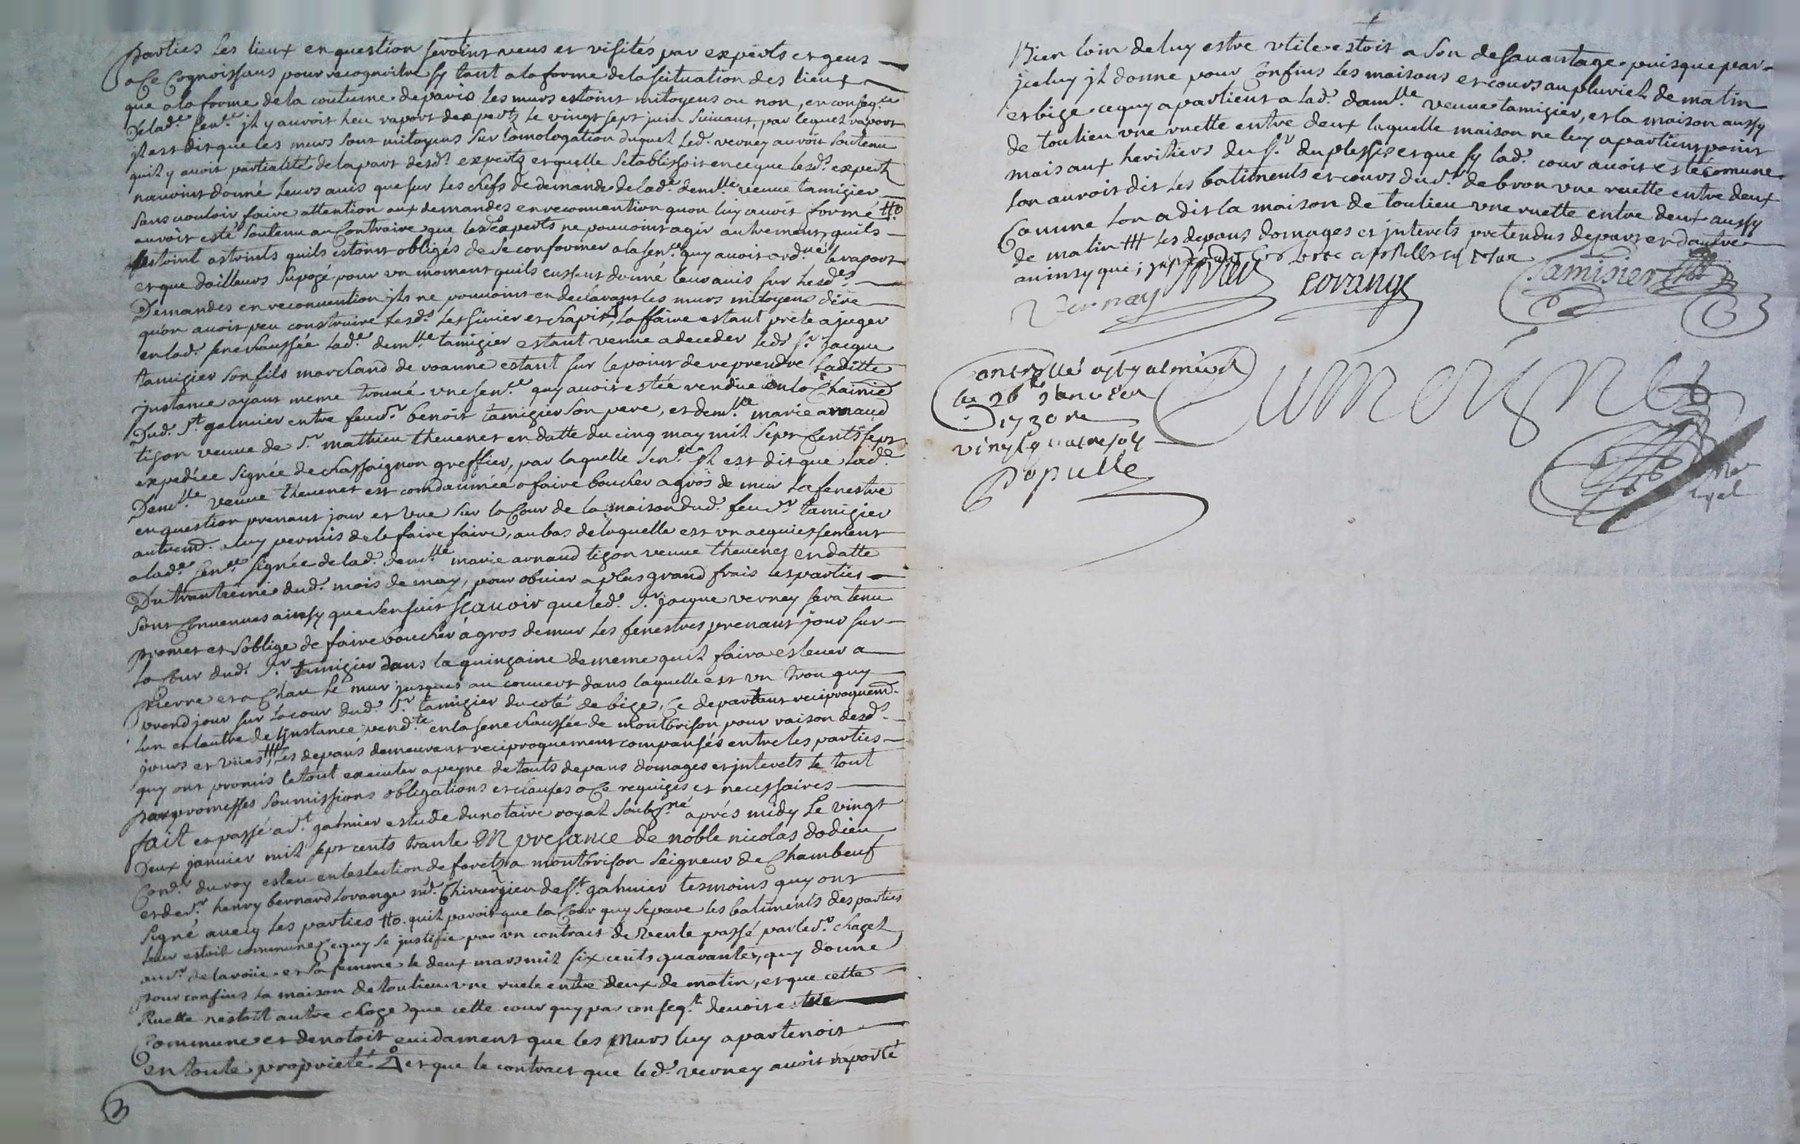 parties les lieux en question seroint veus et visités par experts et gens
a ce cognoissans pour recognoitre sy tant a la forme de la scituation des lieux
que a la forme de la coutume de paris les murs estoint mitoyens ou non, en conseq.ce
de lad.e sen.ce jl y auroit heu raport dexperts le vingt sept juin suivant, par lequel raport
jl est dit que les murs sont mitoyens sur lomologation duquel led.r verney auroit soutenu
quil y avoit partialité de la part desd.s experts et quelle sétablissoit en ce que lesd.s expert
navoint donné leurs avis que sur les chefs de demande de lad.e dem.lle veuve tamizier
sans vouloir faire attention aux demandes en reconvention quon luy avoit formé #o
auroit esté soutenu au contraire que les experts ne pouvoint agir autrement, quils
estoint astraints quils estoint obligés de se conformer a la sen.ce quy avoit ord.né le raport
et que dailleurs suposé pour un moment quils eussent donné leur avis sur lesd.es
demandes en reconvention jls ne pouvoint en declarant les murs mitoyens dire
quon avoit peu construire lesd.s et chapit laffaire estant prete a juger
en lad.e senechaussée lad.e dem.lle tamizier estant venue a deceder led.t s.r Jacque
tamizier son fils marchand de roanne estant sur le point de reprendre laditte
jnstance ayant meme trouvé une sen.ce quy avoit estée rendüe en la chatnie
dud. s.t galmier entre feu s.r benoit tamizier son pere, et dem.lle marie arnaud
tizon veuve de s.r mathieu thevenet en datte du cinq may mil sept cents sept
expediée signée de chassaignon greffier, par laquelle sen.ce jl est dit que lad.e
dem.lle veuve thevenet est condamnée a faire boucher a gros de mur la fenestre
en question prenant jour et vue sur la cour de la maison dud. feu s.r tamizier
autrem.t a luy permis de le faire faire, au bas de laquelle est un acquiessement
a lad.e sen.ce signée de lad. dem.lle marie arnaud tizon veuve thevenet en datte
du trantreme dud. mois de may, pour obvier a plus grand frais les parties
sont convenues ainsy que sensuit scavoir que led. s.r jacque verney sera tenu
promet et soblige de faire boucher à gros de mur les fenestres prenant jour sur
la cour dud. s.r tamizier dans la quinzaine de meme quil faira eslever a
pierre et a chau le mur jusques au couvert dans laquelle est un trou quy
prend jour sur la cour dud. s.r tamizier du coté de bize, se departant reciproquem.t
lun et lautre de linstance pend.te en la senechaussée de montbrison pour raison desd.s
jours et vües # les depans demeurant reciproquement compansés entre les parties
quy ont promis le tout executer a peyne de touts depans domages et jnterets le tout
par promesses soumissions obligations et clauses a ce requizes et necessaires
fait et passé a s.t galmier estude du notaire royal soubz.né aprés midy le vingt
deux janvier mil sept cents trante En presance de noble nicolas dodieu
Con.er du roy esleu en leslection de foretz a montbrison seigneur de Chambeuf
et de s.r henry bernard lorange m.e Chirurgien de s.t galmier tesmoins quy ont
signé avecq les parties #o. quil paroit que la Cour quy separe les batiments des parties
leur estoit commune ce quy se justifie par un contract de vente passé par le s.r chazel
au s.r delavoüe et sa femme le deux mars mil six cents quarante, quy donne
pour confins la maison de toulieu une ruele entre deux de matin, et que cette
Ruelle nestoit autre choze que cette cour quy par conseq.t devoit estre
Commune et denotoit evidament que les murs luy apartenoit
en toute proprieté et que le contract que led.r verney avoit raporté
Bien loin de luy estre utile estoit a son desavantage puisque par
jceluy jl donne pour confins les maisons et cours au pluriel de matin
et bize ce quy apartient a lad.e dam.lle veuve tamizier, et la maison aussy
de toulieu une ruette entre deux laquelle maison ne luy apartient point
mais aux heritiers du s.r duplessis et que sy lad.e cour avoit esté comune
lon auroit dit les batiments et cours du s.r de bron une ruette entre deux
Comme lon a dit la maison de toulieu une ruette entre deux aussy
de matin # les depans domages et jnterets pretendus de part et dautre
ainsy que
Verney
Lorange
Tamisier
Dumoignet
Controllé a st galmier
le 26e Janvier
1730 Re
vingt quatre sols
Populle